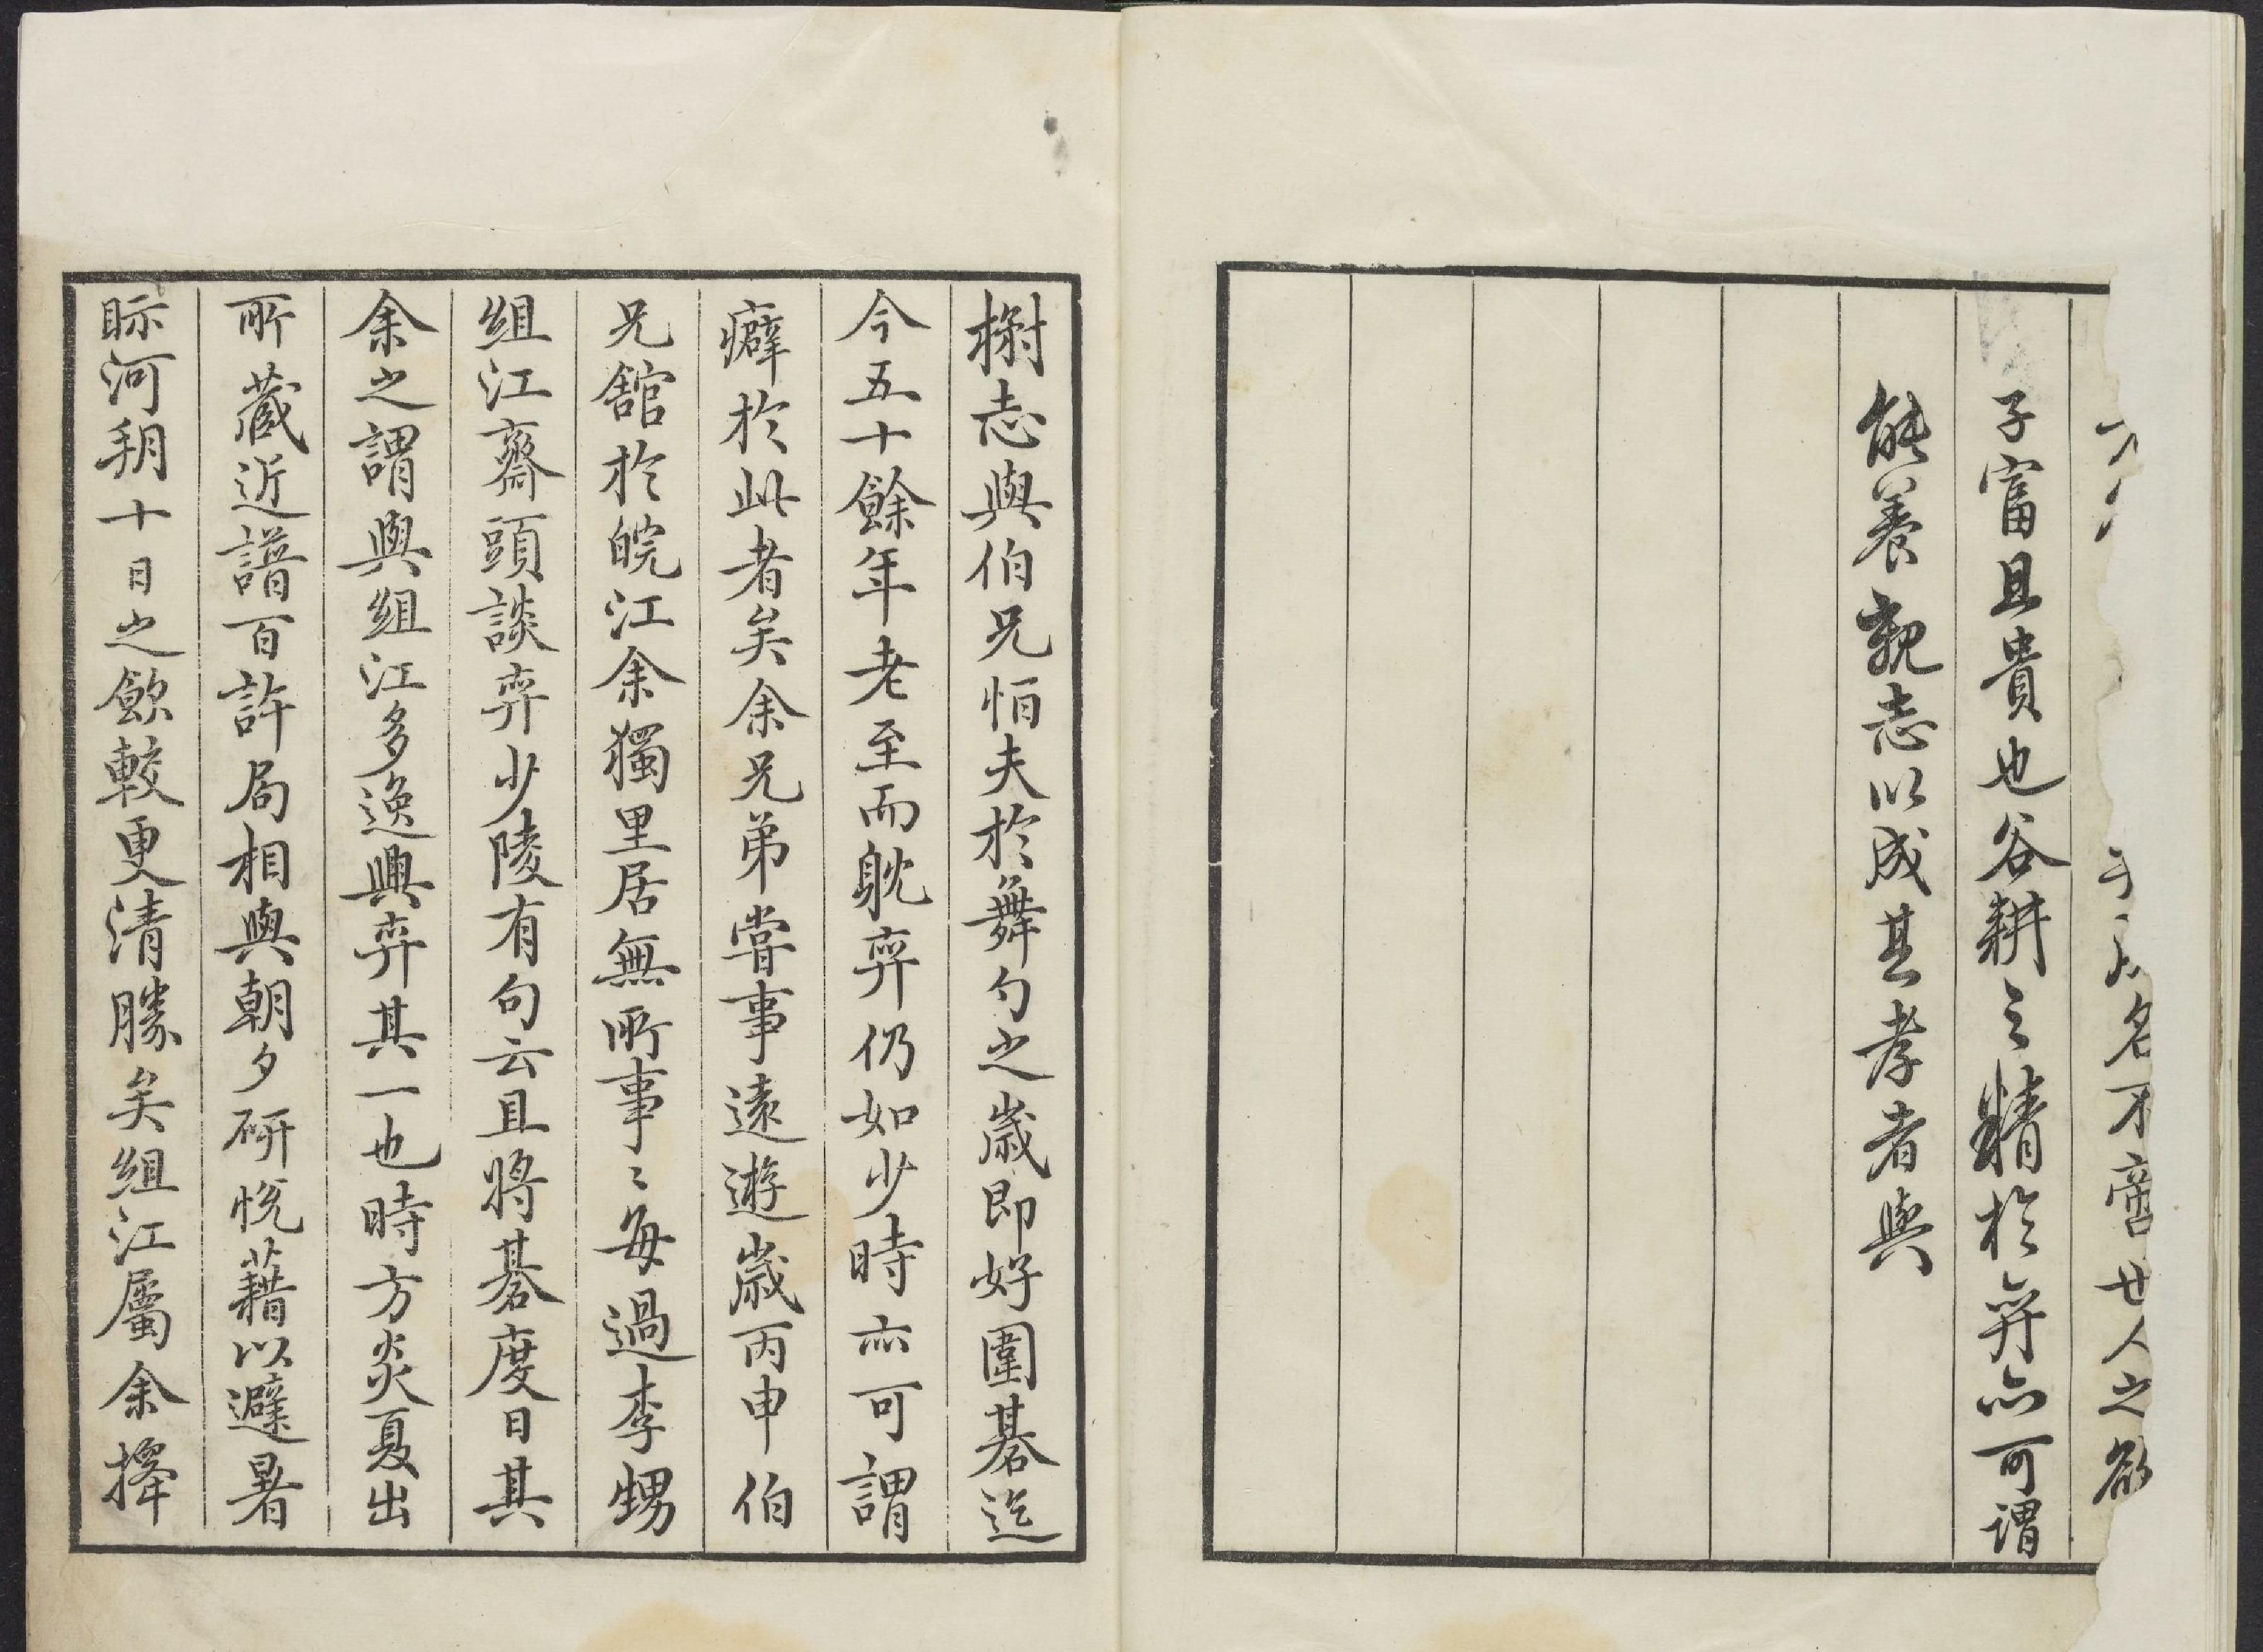 名不啻世人之欲
子富且貴也谷耕之精於弈亦可謂
能養親志以成其孝者與
榭志與伯兄怕夫於舞勺之歲即好圍碁迄
今五十餘年老至而躭弈仍如少時亦可謂
癖於此者矣余兄弟嘗事遠遊歲丙申伯
兄舘於皖江余獨里居無所事〻每過李甥
組江齋頭談弈少陵有句云且將碁度日其
余之謂與組江多逸興弈其一也時方炎夏出
所藏近譜百許局相與朝夕研悅藉以避暑
眎河朔十日之飲較更清勝矣組江屬余擇